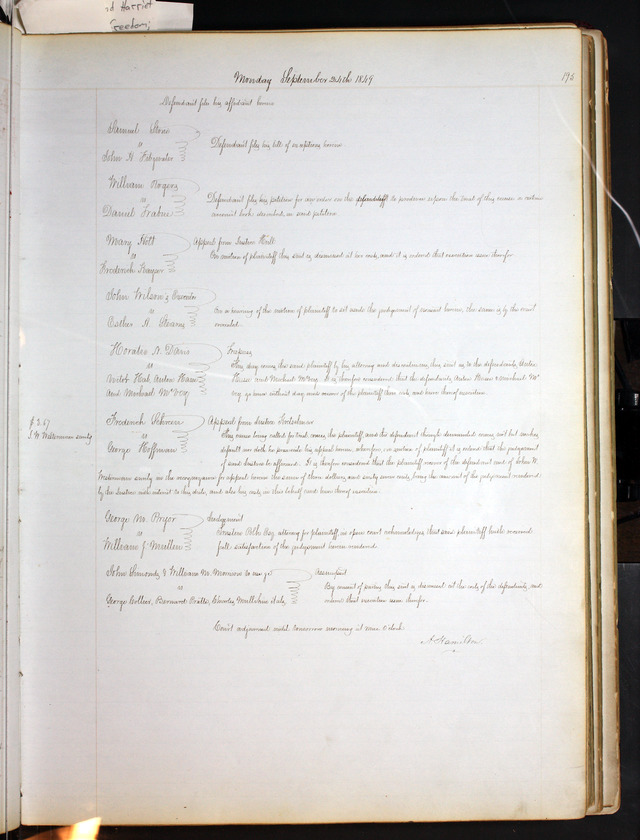 d Harriet
Freedom;
Monday September 24th 1849
195
Defendant files his affidavit herein
Samuel Stone
vs
John H. Fitzwater
Defendant files his bill of exceptions herein.
William Rogers
vs
Daniel
Defendant files his petition for an order on the plaintiff to produce before the trial of this cause a certain
account book described in said petition.
Mary Hott
vs
Frederick
Appeal from Justice Holt
On motion of plaintiff this suit is dismissed at her costs, and it is ordered that execution issue therefor
John Wilson's Executor
vs
Esther A. Stearns
On a hearing of the motion of plaintiff to set aside the judgment of nonsuit herein, the same is by the court
overruled.
Horatio N. Davis
vs
and Michael McVey
Trespass
This day comes the said plaintiff by his attorney and discontinues this suit as to the defendants,
and Michael McVey. It is therefore considered that the defendants, and Michael Mc
Vey go hence without day and recover of the plaintiff their costs and have thereof execution.
$3.67
J. N. security
Frederick
vs
George Hoffman
Appeal from Justice
This cause being called for trial, comes the plaintiff, and the defendant though demanded comes not but makes
default nor doth he prosecute his appeal herein, wherefore, on motion of plaintiff it is ordered that the judgment
of said Justice be affirmed. It is therefore considered that the plaintiff recover of the defendant and of John N.
security in the recognizance for appeal herein the sum of three dollars and sixty seven cents, being the amount of the judgment rendered
by the Justice with interest to this date, and also his costs in this behalf and have thereof execution.
George M. Pryor
vs
William J. Mullen
Judgment
Esq. attorney for plaintiff, in open court acknowledges that said plaintiff hath received
full satisfaction of the judgment herein rendered.
John Simonds & William M. Morrison to use of
vs
George Collier, Bernard Pratte, Charles
Assumpsit
By consent of parties this suit is dismissed at the costs of the defendants, and
ordered that execution issue therefor.
Court adjourned until tomorrow morning at nine o'clock.
A. Hamilton